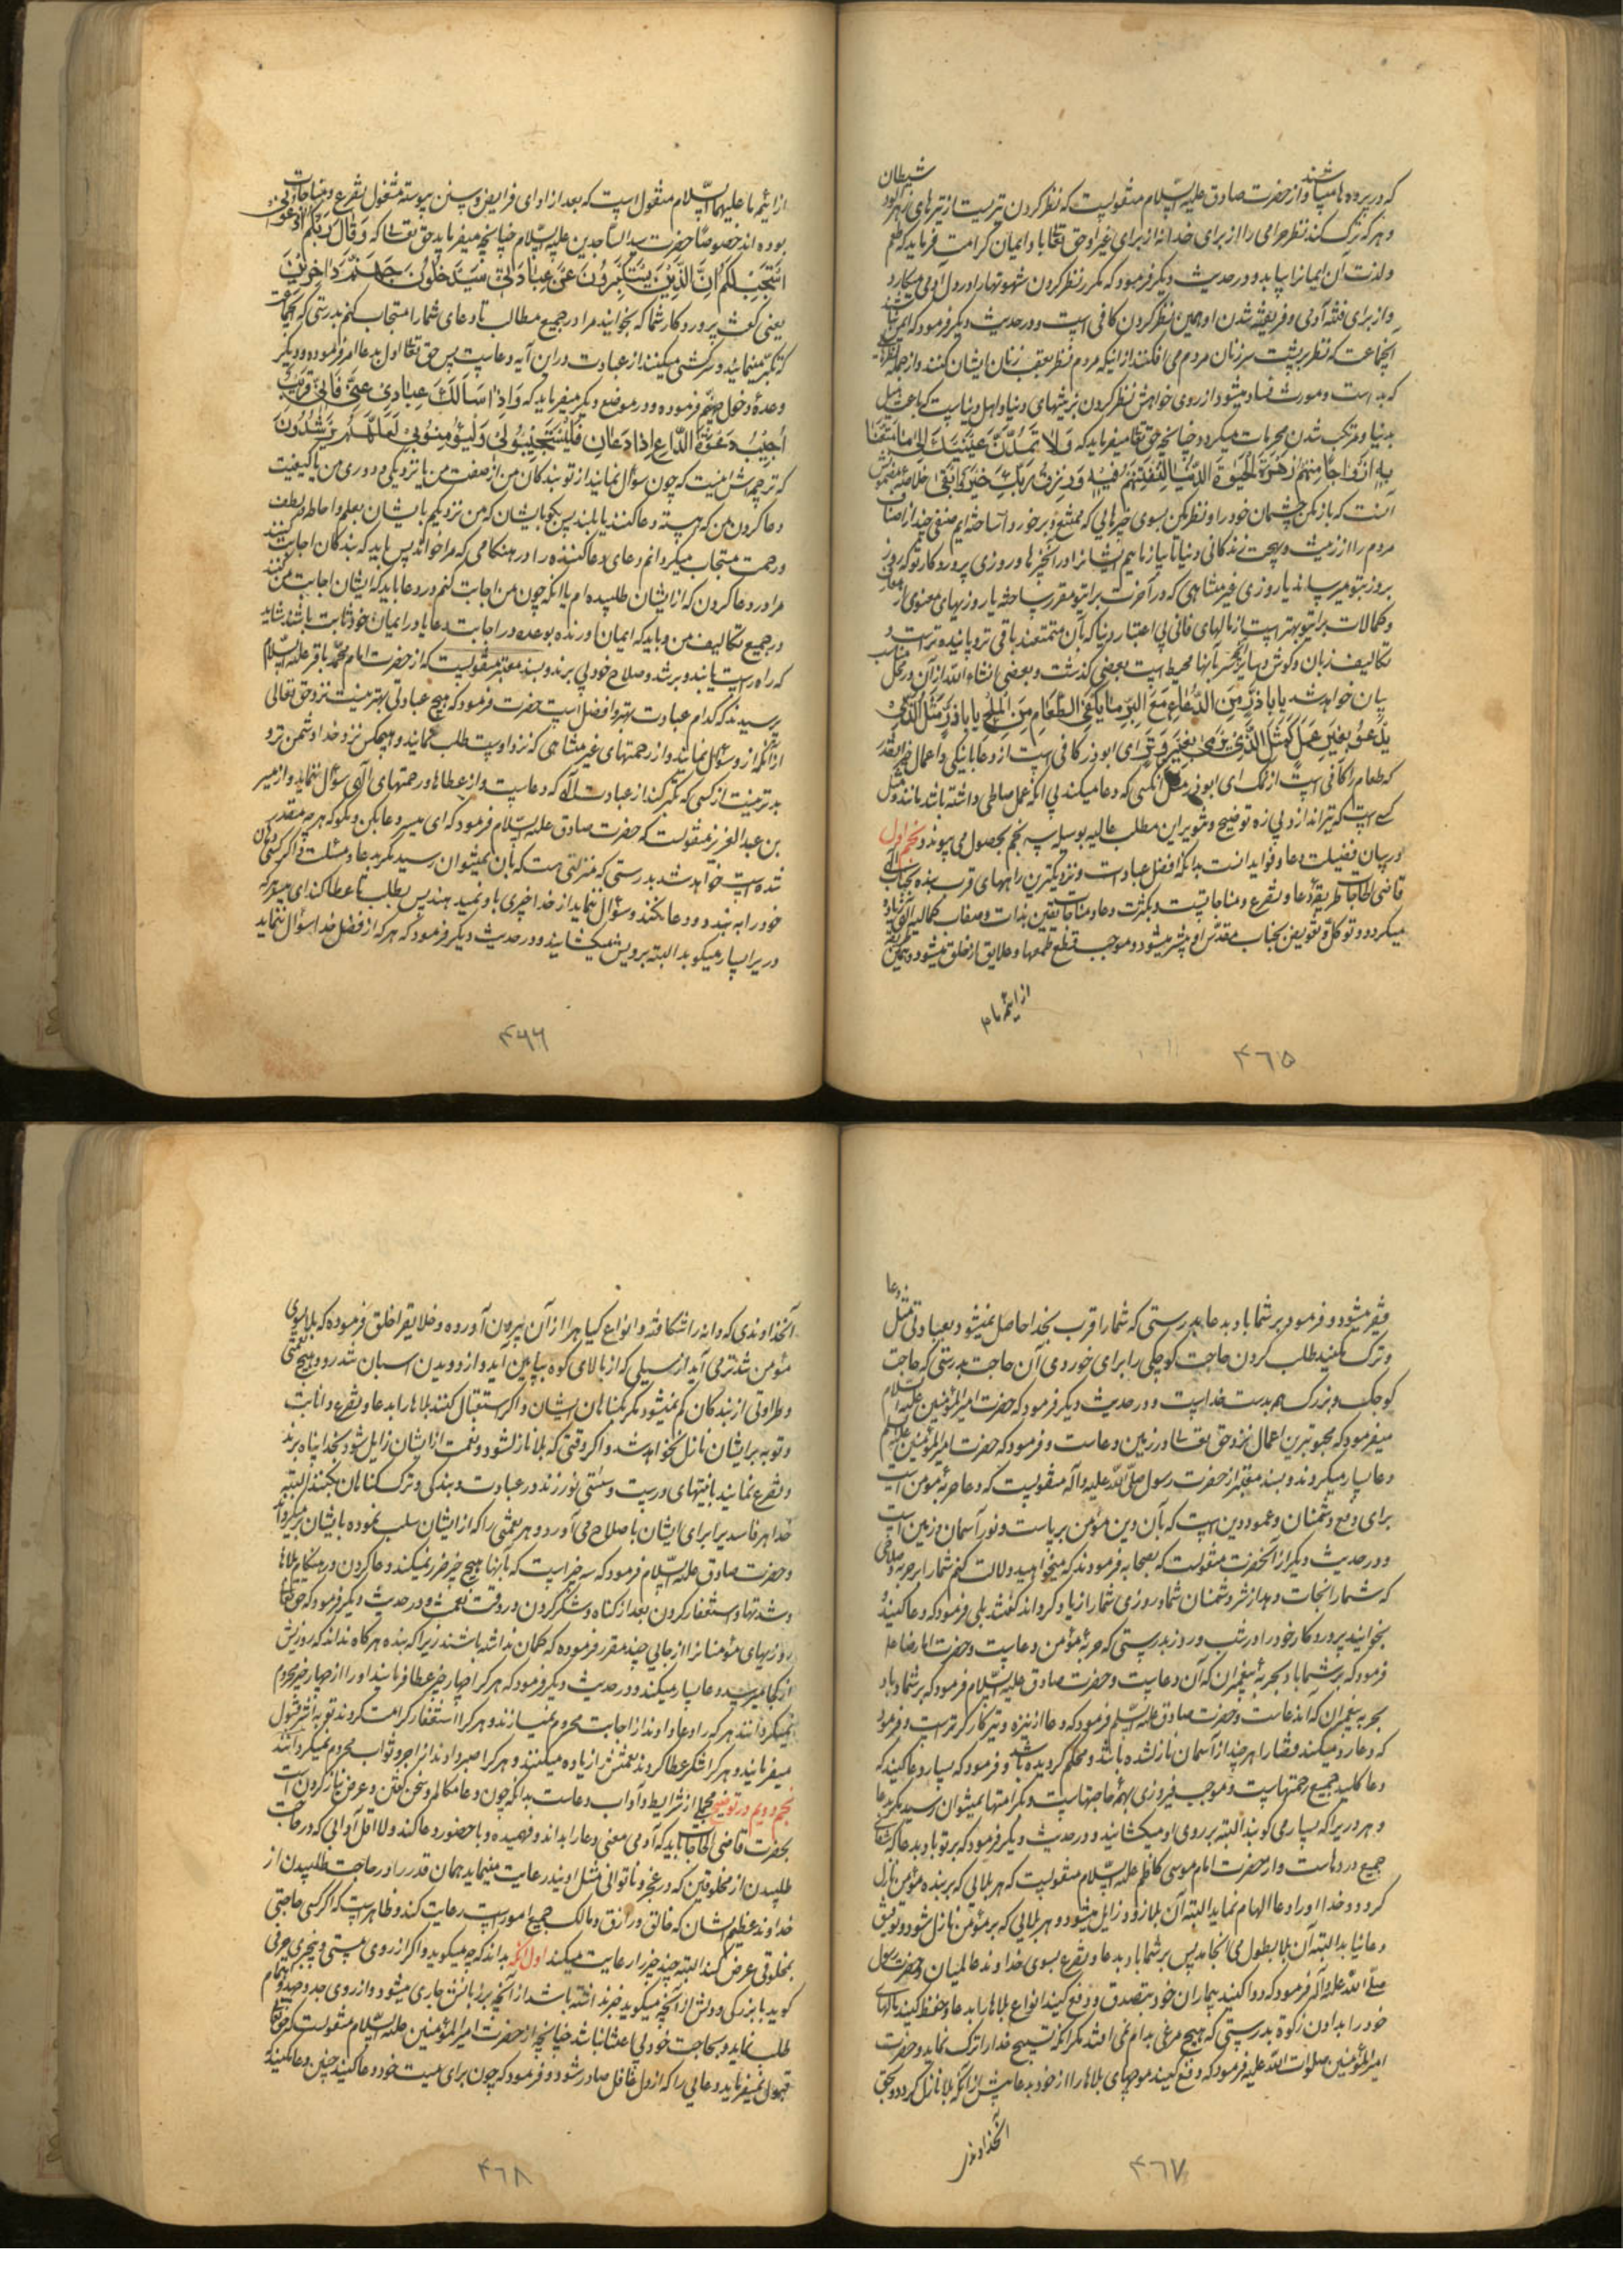 که در پرده ها میباشند و از حضرت صادق علیه السّلام منقولست که نظر کردن تیریست از تیرهای زهرآلود شیطان
و هر که ترک کند نظر حرامی را از برای خدا نه از برای غیر او حق تعالی باو ایمان کرامت فرماید که طعم
و لذت آن ایمانرا بیابد و در حدیث دیگر فرمود که مکرر نظر کردن شهوتها را در دل آدمی میکارد
و از برای فتنه آدمی و فریفته شدن او همین نظر کردن کافی است و در حدیث دیگر فرمود که ایمن نیستند
آنجماعت که نظر بر پشت سر زنان مردم می افکنند از اینکه مردم نظر بعقب زنان ایشان کنند و از جمله نظرهائی
که بد است و مورث فساد میشود از روی خواهش نظر کردن بزینتهای دنیا و اهل دنیاست که باعث میل
بدنیا و مرتکب شدن محرمات میگردد چنانچه حق تعالی میفرماید که وَلا تَمُدَّنَّ عَیْنَیْكَ اِلی مٰا مَتَّعْنٰا
بِهِ اَزْوٰاجًا مِنْهُمْ زَهْرَةَ الْحَیٰوةِ الدُّنْیٰا لِنَفْتِنَهُمْ فیٖهِ وَ رِزْقُ رَبِّكَ خَیْرٌ وَ اَبْقٰی خلاصه مضمونش
آنست که باز مکن چشمان خود را و نظر مکن بسوی چیزهایی که ممتّع و برخوردار ساخته ایم صنفی چند از اصناف
مردم را از زینت و بهجت زندگانی دنیا تا بیازماییم ایشانرا در آنچیزها و روزی پروردگار تو که روز
بروز بتو میرساند یا روزی غیر متناهی که در آخرت برای تو مقرر ساخته یا روزیهای معنوی از معارف
و کمالات برای تو بهتر است از مالهای فانی بی اعتبار دنیا که بآن متمتعند و باقی تر و پاینده تر است و
تکالیف زبان و گوش و سایر آنچه سر بآنها محیط است بعضی گذشت و بعضی انشاء اللّه از آن در محل مناسب
بیان خواهد شد یا باذَرٍّ یَکْفٖی مِنَ الدُّعٰاءِ مَعَ الْبِرِّ مٰا یَکْفِی الطَّعٰامَ مِنَ الْمِلْحِ یا باذَرٍّ مَثَلُ الَّذیٖ
یَدْعُو بِغَیْرِ عَمَلٍ کَمَثَلِ الَّذیٖ یَرْمیٖ بِغَیْرِ وَتَرٍ ای ابوذر کافی است از دعا با نیکی و اعمال خیر آنقدر
که طعام را کافی است از نمک ای ابوذر مثل آنکسی که دعا میکند بی آنکه عمل صالحی داشته باشد مانند مثل
کسیست که تیر اندازد بی زه توضیح و تنویر این مطلب عالیه بوسیله سه نجم بحصول می پیوندد نجم اول
در بیان فضیلت دعا و فواید آنست بدانکه افضل عبادات و نزدیکترین راههای قرب بنده بجناب
قاضی الحاجات طریقه دعا و تضرع و مناجاتست و بکثرت دعا و مناجات یقین بذات و صفات کمالیه الهی زیاده
میگردد و توکل و تفویض بجناب مقدّس او بیشتر میشود و موجب قطع طمعها و علایق از خلق میشود و همین طریقه
از ائمه ما م
۴۶۵
از ائمه ما علیهما السّلام منقول است که بعد از ادای فرایض و سنن پیوسته مشغول تضرع و مناجات
بوده اند خصوصا حضرت سید الساجدین علیه السّلام چنانچه میفرماید حق تعالی که وَ قٰالَ رَبُّکُمُ ادْعُونیٖ
اَسْتَجِبْ لَکُمْ اِنَّ الَّذیٖنَ یَسْتَکْبِرُونَ عَنْ عِبٰادَتیٖ سَیَدْخُلُونَ جَهَنَّمَ دٰاخِریٖنَ
یعنی گفت پروردگار شما که بخوانید مرا در جمیع مطالب تا دعای شما را مستجاب کنم بدرستی که آنجماعت
که تکبر مینمایند و سرکشی میکنند از عبادت و در این آیه دعاست پس حق تعالی اول بدعا امر فرموده و دیگر
وعدهٔ دخول جهنم فرموده و در موضع دیگر میفرماید که وَ اِذٰا سَأَلَكَ عِبٰادیٖ عَنّیٖ فَاِنّیٖ قَریٖبٌ
اُجیٖبُ دَعْوَةَ الدّٰاعِ اِذٰا دَعٰانِ فَلْیَسْتَجیٖبُوا لیٖ وَلْیُؤْمِنُوا بیٖ لَعَلَّهُمْ یَرْشُدُونَ
که ترجمه اش اینست که چون سؤال نمایند از تو بندگان من از صفت من یا نزدیکی و دوری من یا کیفیت
دعا کردن من که آهسته دعا کنند یا بلند پس بگو بایشان که من نزدیکم بایشان بعلم و احاطه و لطف
و رحمت مستجاب میگردانم دعای دعا کننده را در هنگامی که مرا خواند پس باید که بندگان اجابت کنند
مرا در دعا کردن که از ایشان طلبیده ام یا آنکه چون من اجابت کنم در دعا باید که ایشان اجابت من کنند
در جمیع تکالیف من و باید که ایمان آورنده بوعده در اجابت دعا یا در ایمان خود ثابت باشند شاید
که راه راست یابند و برشد و صلاح خود پی برند و بسند معتبر منقولست که از حضرت امام محمد باقر علیه السّلام
پرسیدند که کدام عبادت بهتر و افضل است حضرت فرمود که هیچ عبادتی بهتر نیست نزد حق تعالی
از آنکه از او سؤال نمایند و از رحمتهای غیر متناهی که نزد اوست طلب نمایند و هیچکس نزد خدا دشمن تر و
بدتر نیست از کسی که تکبر کند از عبادت الهی که دعاست و از عطاها و رحمتهای الهی سؤال ننماید و از میسر
بن عبدالعزیز منقولست که حضرت صادق علیه السّلام فرمود که ای میسر دعا بکن و مگو که هر چه مقدر
شده است خواهد شد بدرستی که منزلتی هست که بآن نمیتوان رسید مگر بدعا و مسئلت و اگر کسی دهان
خود را به بندد و دعا نکند و سؤال ننماید از خدا چیزی باو نمیدهند پس بطلب تا عطا کند ای میسر هر که
در یرا بسیار میکوبد البته برویش میگشایند و در حدیث دیگر فرمود که هر که از فضل خدا سؤال ننماید
۴۶۶
فقیر میشود و فرمود بر شما باد بدعا بدرستی که شما را قرب بخدا حاصل نمیشود بعبادتی مثل دعا
و ترک مکنید طلب کردن حاجت کوچکی را برای خوردی آن حاجت بدرستی که حاجت
کوچک و بزرگ همه بدست خداست و در حدیث دیگر فرمود که حضرت امیر المؤمنین علیه السّلام
میفرمود که محبوبترین اعمال نزد حق تعالی در زمین دعاست و فرمود که حضرت امیر المؤمنین علیه السلم
دعا بسیار میکردند و بسند معتبر از حضرت رسول صلّی اللّه علیه وآله منقولست که دعا حربهٔ مومن است
برای دفع دشمنان و عمود دین است که بآن دین مؤمن برپاست و نور آسمان و زمین است
و در حدیث دیگر از آنحضرت منقولست که بصحابه فرمودند که میخواهید دلالت کنم شما را بر حربه و سلاحی
که شما را نجات دهد از شر دشمنان شما و روزی شما را زیاد گرداند گفتند بلی فرمود که دعا کنید و
بخوانید پروردگار خود را در شب و روز بدرستی که حربهٔ مؤمن دعاست و حضرت امام رضا علیه
فرمود که بر شما باد بحربهٔ پیغمبران که آن دعاست و حضرت صادق علیه السّلام فرمود که بر شما باد
بحربه پیغمبران که آندعاست و حضرت صادق علیه السلم فرمود که دعا از نیزه و تیر کارگرتر است و فرمود
که دعا رد میکند قضا را هر چند از آسمان نازل شده باشد و محکم گردیده باشد و فرمود که بسیار دعا کنید که
دعا کلید جمیع رحمتهاست و موجب فیروزی بهمه حاجتهاست و بکرامتها نمیتوان رسید مگر بدعا
و هر دریرا که بسیار می کوبند البته بر روی او میگشایند و در حدیث دیگر فرمود که بر تو باد بدعا که شفای
جمیع دردهاست و از حضرت امام موسی کاظم علیه السّلام منقولست که هر بلایی که بر بنده مؤمن نازل
گردد و خدا او را دعا الهام نماید البته آن بلا زود زایل میشود و هر بلایی که بر مؤمن نازل شود و توفیق
دعا نیابد البته آن بلا بطول می انجامد پس بر شما باد بدعا و تضرع بسوی خداوند عالمیان و حضرت رسول
صلّی اللّه علیه وآله فرمود که دوا کنید بیماران خود بتصدق و دفع کنید انواع بلاها را بدعا و حفظ کنید مالهای
خود را بدادن زکوة بدرستی که هیچ مرغی بدام نمی افتد مگر آنکه تسبیح خدا را ترک نماید و حضرت
امیر المؤمنین صلوات اللّه علیه فرمود که دفع کنید موجهای بلاها را از خود بدعا پیش از آنکه بلا نازل گردد و بحق
آنخداوند
۴۶۷
آنخداوندی که دانه را شکافته و انواع گیاهرا از آن بیرون آورده و خلایقرا خلق فرموده که بلا بسوی
مؤمن تندتر می آید از سیلی که از بالای کوه بپایین آید و از دویدن اسبان تندرو و هیچ نعمتی
و طراوتی از بندگان کم نمیشود مگر بگناهان ایشان و اگر استقبال کنند بلاها را بدعا و تضرع و انابت
و توبه بر ایشان نازل نخواهد شد و اگر وقتی که بلا نازل شود و نعمت از ایشان زایل شود بخدا پناه برند
و تضرع نمایند با نیتهای درست و سستی نورزند در عبادت و بندگی و ترک گناهان بکنند البته
خدا هر فاسدیرا برای ایشان باصلاح می آورد و هر نعمتی را که از ایشان سلب نموده بایشان برمیگرداند
و حضرت صادق علیه السّلام فرمود که سه چیز است که بآنها هیچ چیز ضرر نمیکند دعا کردن در هنگام بلاها
و شدتها و استغفار کردن بعد از گناه و شکر کردن در وقت نعمت و در حدیث دیگر فرمود که حق تعالی
روزیهای مؤمنانرا از جایی چند مقرر فرموده که گمان نداشته باشند زیرا که بنده هر گاه نداند که روزیش
از کجا میرسد دعا بسیار میکند و در حدیث دیگر فرمود که هر کرا چهار چیز عطا فرمایند او را از چهار چیز محروم
نمیگردانند هر که را دعا دادند از اجابت محروم نمیسازند و هر کرا استغفار کرامت کردند توبه اش قبول
میفرمایند و هر کرا شکر عطا کردند نعمتش را زیاده میکنند و هر کرا صبر دادند از اجر و ثواب محروم نمیگردانند
نجم دویم در توضیح مجملی از شرایط و آداب دعاست بدانکه چون دعا مکالمه و سخن گفتن و عرض نیاز کردن است
بحضرت قاضی الحاجات باید که آدمی معنی دعا را بداند و فهمیده و با حضور دعا کند و لا اقل آدابی که در حاجت
طلبیدن از مخلوقین که در عجز و ناتوانی مثل اویند رعایت مینماید همان قدر را در حاجت طلبیدن از
خداوند عظیم الشان که خالق و رازق و مالک جمیع امور است رعایت کند و ظاهر است که اگر کسی حاجتی
بمخلوقی عرض کند البته چند چیز را رعایت میکند اول آنکه بداند که چه میگوید و اگر از روی مستی و بیخبری حرفی
گوید با بزرگی و دلش از آنچه میگوید خبر نداشته باشد از آنچه بر زبانش جاری میشود و از روی جد و جهد و اهتمام
طلب نماید و بحاجت خود بی اعتنا نباشد چنانچه از حضرت امیر المؤمنین علیه السّلام منقولست که حق تعالی
قبول نمیفرماید دعایی را که از دل غافل صادر شود و فرمود که چون برای میت خود دعا کنید چنین دعا مکنید
۴۶۸